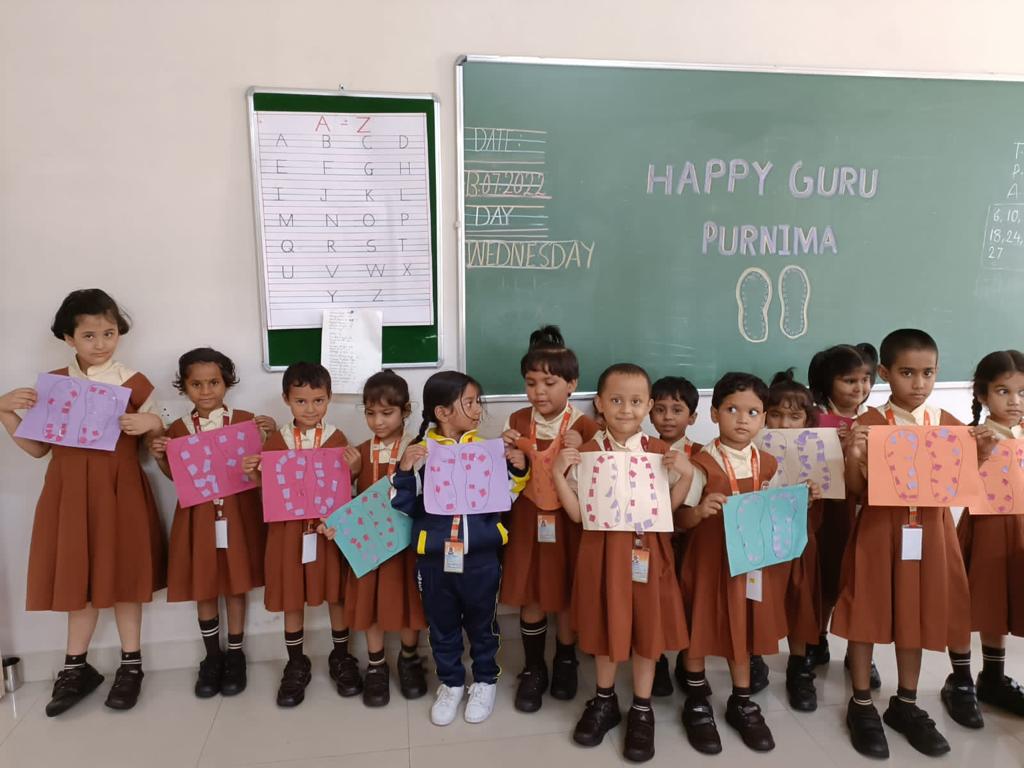 A - Z
A B C D
E F G H
I J K L
M N O P
Q R S T
U V W X
Y Z
DATE:
13.07.2022
DAY
WEDNESDAY
HAPPY GURU
PURNIMA
T
P
A
6, 10,
18, 24,
27